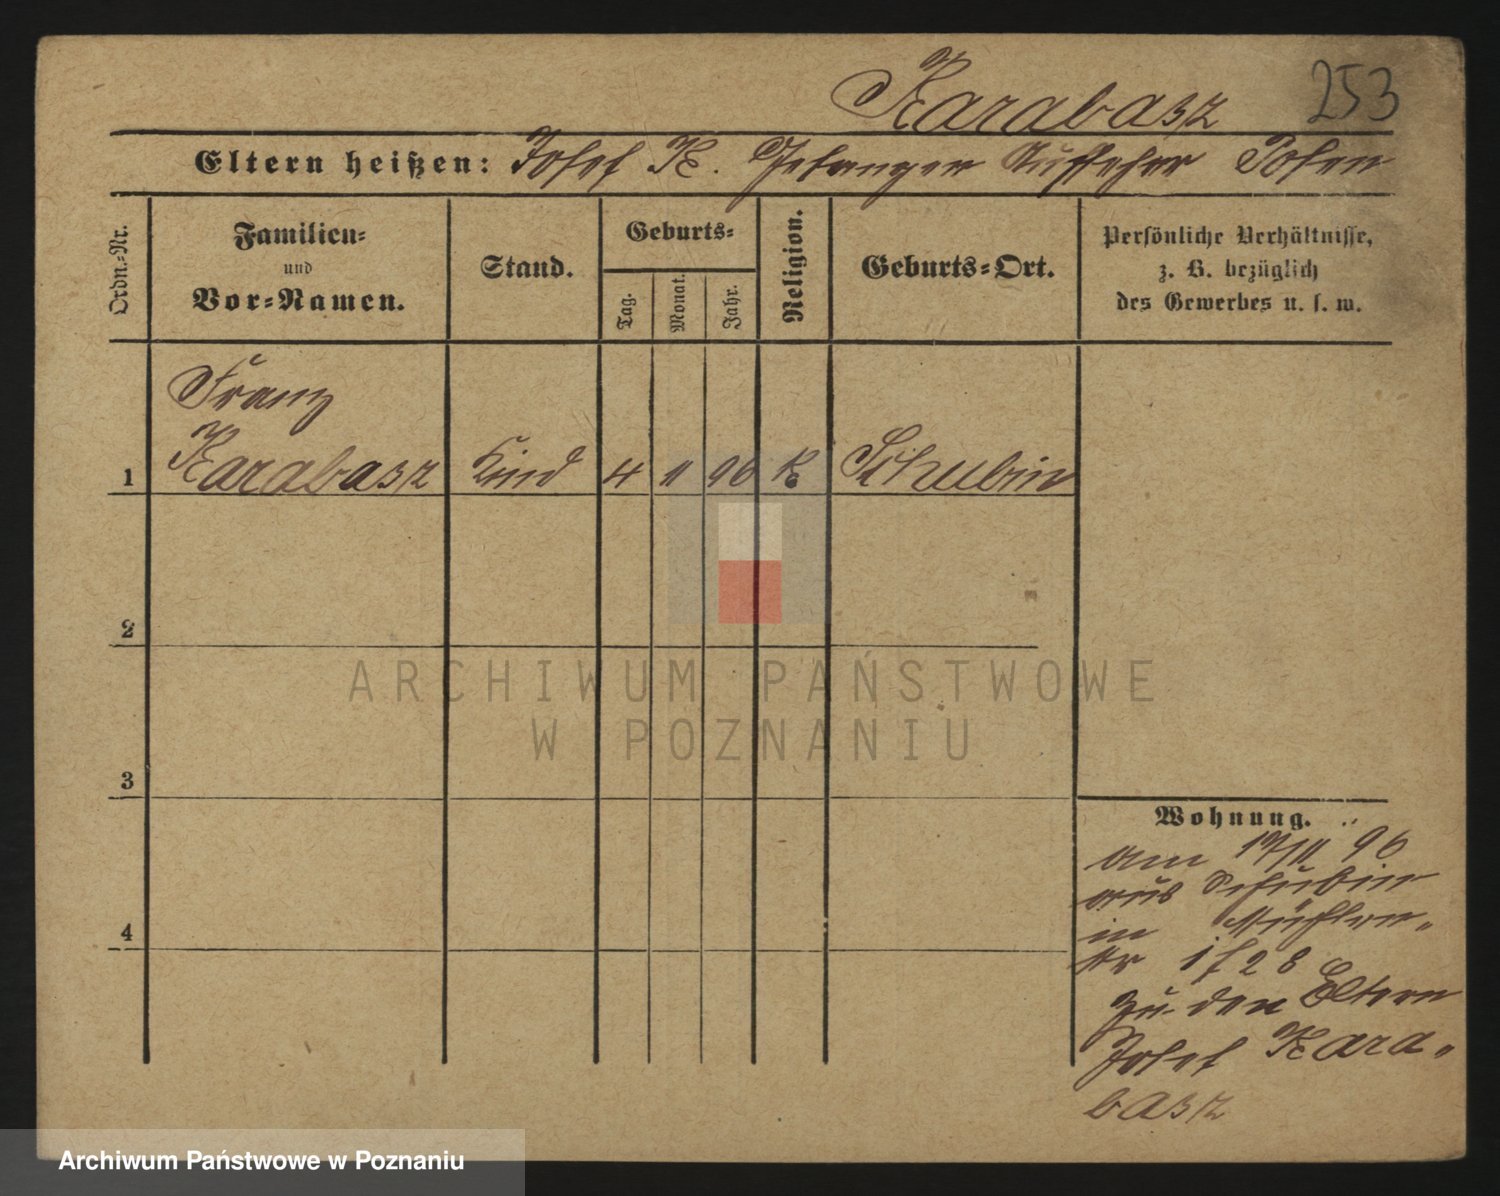 Karabasz 253
Eltern heißen: Josef K. Gefangen Aufseher Posen
Ordn.-Nr.
Familien-
und
Vor-Namen.
Stand.
Geburts-
Tag.
Monat.
Jahr.
Religion.
Geburts-Ort.
Persönliche Verhältnisse,
z. B. bezüglich
des Gewerbes u. s. w.
Franz
1 Karabasz Kind 4 11 96 K Schubin
2
3
4
Wohnung.
am 17/11 96
aus Schubin
in Mühlen-
str
zu den Eltern
Josef Kara-
basz
ARCHIWUM PAŃSTWOWE
W POZNANIU
Archiwum Państwowe w Poznaniu